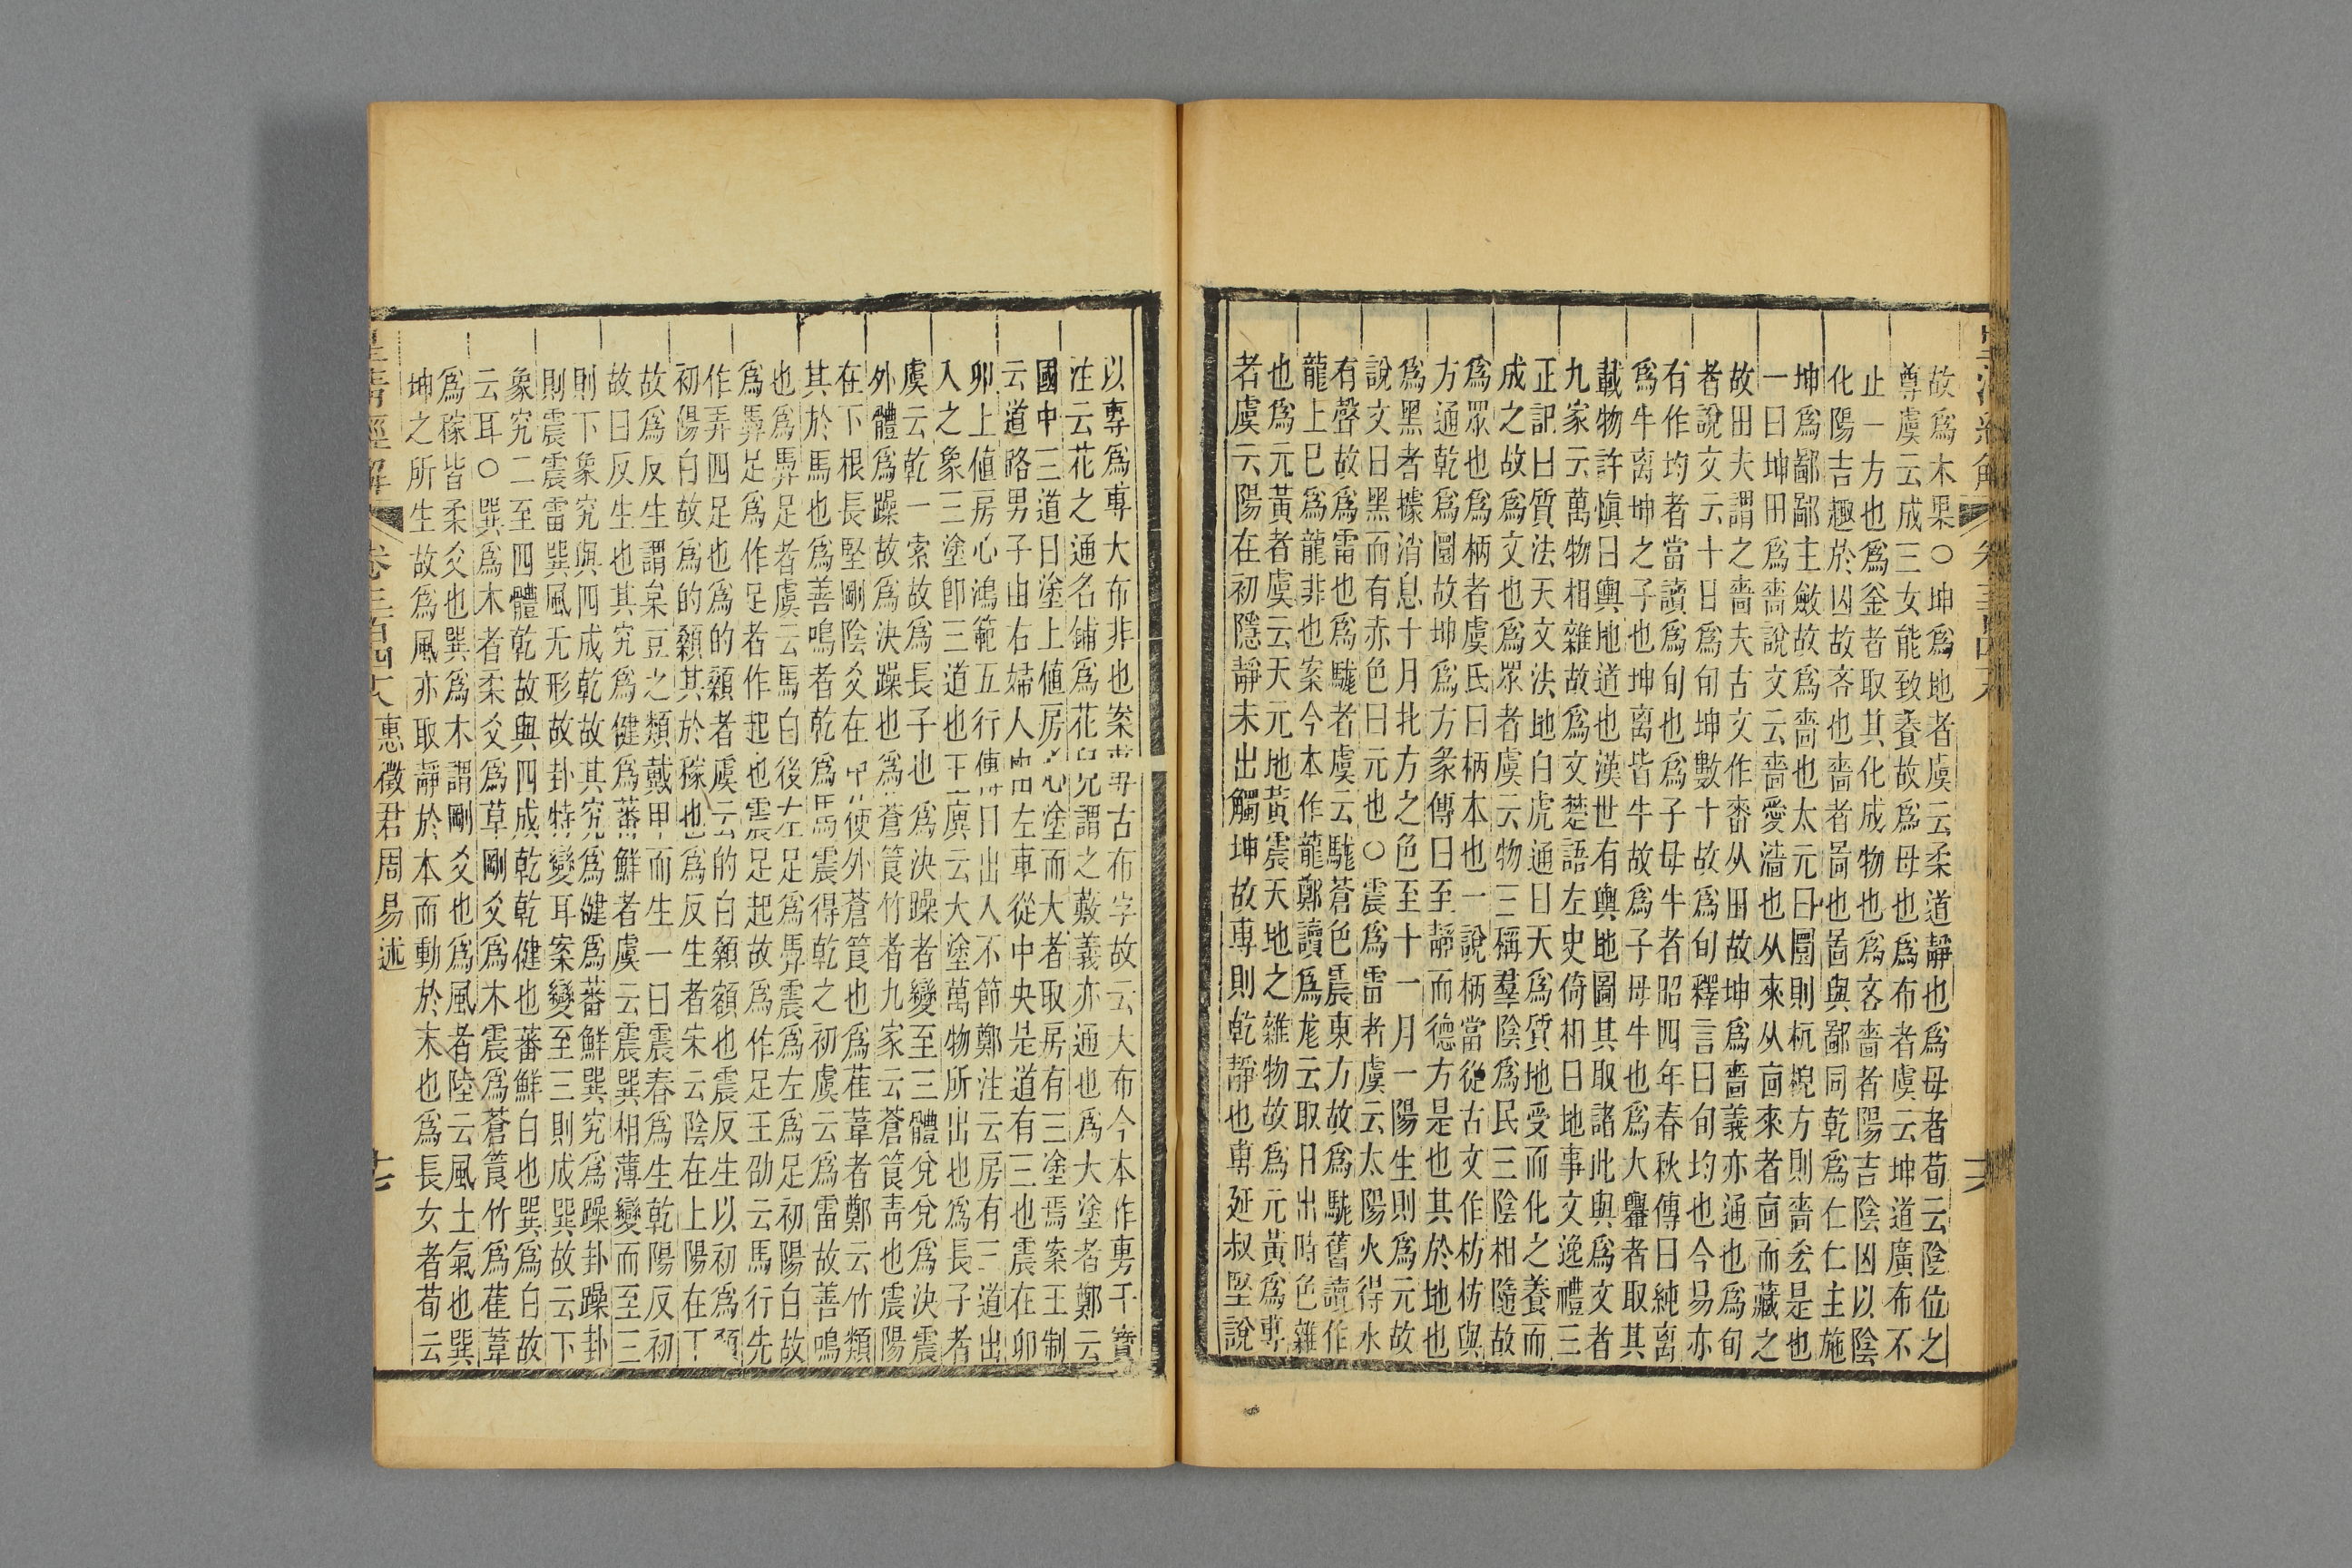 故爲木果○坤爲地者虞云柔道靜也爲母者荀云陰位之
尊虞云成三女能致養故爲母也爲布者虞云坤道廣布不
止一方也爲釜者取其化成物也爲吝嗇者陽吉陰凶以陰
化陽吉趣於凶故吝也嗇者啚也啚與鄙同乾爲仁仁主施
坤爲鄙鄙主斂故爲嗇也太元曰圜則杌棿方則嗇㕒是也
一曰坤田爲嗇說文云嗇愛濇也从來从㐭來者㐭而藏之
故田夫謂之嗇夫古文作𤲞从田故坤爲嗇義亦通也爲旬
者說文云十日爲旬坤數十故爲旬釋言曰旬均也今易亦
有作均者當讀爲旬也爲子母牛者昭四年春秋傳曰純离
爲牛离坤之子也坤离皆牛故爲子母牛也爲大轝者取其
載物許愼曰輿地道也漢世有輿地圖其取諸此與爲文者
九家云萬物相雜故爲文楚語左史倚相曰地事文逸禮三
正記曰質法天文法地白虎通曰天爲質地受而化之養而
成之故爲文也爲眾者虞云物三稱羣陰爲民三陰相隨故
爲眾也爲柄者虞氏曰柄本也一說柄當從古文作枋枋與
方通乾爲圜故坤爲方彖傳曰至靜而德方是也其於地也
爲黑者據消息十月北方之色至十一月一陽生則爲元故
說文曰黑而有赤色曰元也○震爲雷者虞云太陽火得水
有聲故爲雷也爲駹者虞云駹蒼色震東方故爲駹舊讀作
龍上巳爲龍非也案今本作龍鄭讀爲尨云取日出時色雜
也爲元黃者虞云天元地黃震天地之雜物故爲元黃爲專
者虞云陽在初隱靜未出觸坤故專則乾靜也專延叔堅說
以專爲專大布非也案専古布字故云大布今本作旉干寶
注云花之通名鋪爲花皃謂之蔽義亦通也爲大塗者鄭云
國中三道曰塗上値房心塗而大者取房有三塗焉案王制
云道路男子由右婦人由左車從中央是道有三也震在卯
卯上値房心鴻範五行傳曰出入不節鄭注云房有三道出
入之象三塗卽三道也王廙云大塗萬物所出也爲長子者
虞云乾一索故爲長子也爲決躁者變至三體兌兌爲決震
外體爲躁故爲決躁也爲蒼筤竹者九家云蒼筤靑也震陽
在下根長堅剛陰爻在中使外蒼筤也爲萑葦者鄭云竹類
其於馬也爲善鳴者乾爲馬震得乾之初虞云爲雷故善鳴
也爲馵足者虞云馬白後左足爲馵震爲左爲足初陽白故
爲馵足爲作足者作起也震足起故爲作足王劭云馬行先
作弄四足也爲的顙者虞云的白顙額也震反生以初爲顙
初陽白故爲的顙其於稼也爲反生者宋云陰在上陽在下
故爲反生謂枲豆之類戴甲而生一曰震春爲生乾陽反初
故曰反生也其究爲健爲蕃鮮者虞云震巽相薄變而至三
則下象究與四成乾故其究爲健爲蕃鮮巽究爲躁卦躁卦
則震震雷巽風无形故卦特變耳案變至三則成巽故云下
象究二至四體乾故與四成乾乾健也蕃鮮白也巽爲白故
云耳○巽爲木者柔爻爲草剛爻爲木震爲蒼筤竹爲萑葦
爲稼皆柔爻也巽爲木謂剛爻也爲風者陸云風土氣也巽
坤之所生故爲風亦取靜於本而動於末也爲長女者荀云
皇清經解 卷三百四十六 惠徵君周易述 十七